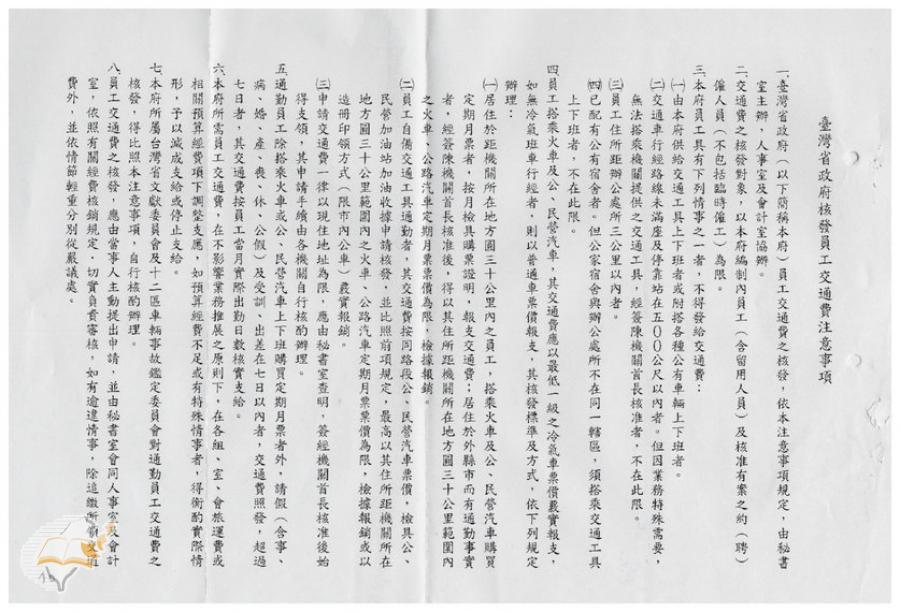 臺灣省政府核發員工交通費注意事項
一、臺灣省政府（以下簡稱本府）員工交通費之核發，依本注意事項規定，由秘書
室主辦，人事室及會計室協辦。
二、交通費之核發對象，以本府編制內員工（含留用人員）及核准有案之約（聘）
僱人員（不包括臨時僱工）為限。
三、本府員工具有下列情事之一者，不得發給交通費：
㈠由本府供給交通工具上下班者或附搭各種公有車輛上下班者。
㈡交通車行經路線未滿座及停靠站在五００公尺以內者。但因業務特殊需要，
無法搭乘機關提供之交通工具，經簽陳機關首長核准者，不在此限。
㈢員工住所距辦公處所三公里以內者。
㈣已配有公有宿舍者。但公家宿舍與辦公處所不在同一轄區，須搭乘交通工具
上下班者，不在此限。
四、員工搭乘火車及公、民營汽車，其交通費應以最低一級之冷氣車票價覈實報支，
如無冷氣班車行經者，則以普通車票價報支，其核發標準及方式，依下列規定
辦理：
㈠居住於距機關所在地方圓三十公里內之員工，搭乘火車及公、民營汽車購買
定期月票者，按月檢具購票證明，報支交通費；居住於外縣市而有通勤事實
者，經簽陳機關首長核准後，得以其住所距機關所在地方圓三十公里範圍內
之火車、公路汽車定期月票票價為限，檢據報銷。
㈡員工自備交通工具通勤者，其交通費按同路段公、民營汽車票價，檢具公、
民營加油站加油收據申請核發，並比照前項規定，最高以其住所距機關所在
地方圓三十公里範圍內之火車、公路汽車定期月票票價為限，檢據報銷或以
造冊印領方式（限市內公車）覈實報銷。
㈢申請交通費一律以現住地址為限，應由秘書室查明，簽經機關首長核准後始
得支領，其申請手續由各機關自行核酌辦理。
五、通勤員工除搭乘火車或公、民營汽車上下班購買定期月票者外，請假（含事、
病、婚、產、喪、休、公假）及受訓、出差在七日以內者，交通費照發，超過
七日者，其交通費按員工當月實際出勤日數核實支給。
六、本府所需員工交通費，在不影響業務推展之原則下，在各組、室、會旅運費或
相關預算經費項下調整支應，如預算經費不足或有特殊情事者，得衡酌實際情
形，予以減成支給或停止支給。
七、本府所屬台灣省文獻委員會及十二區車輛事故鑑定委員會對通勤員工交通費之
核發，得比照本注意事項，自行核酌辦理。
八、員工交通費之核發，應由當事人主動提出申請，並由秘書室會同人事室及會計
室，依照有關經費核銷規定，切實負責審核，如有逾違情事，除追繳所領交通
費外，並依情節輕重分別從嚴議處。